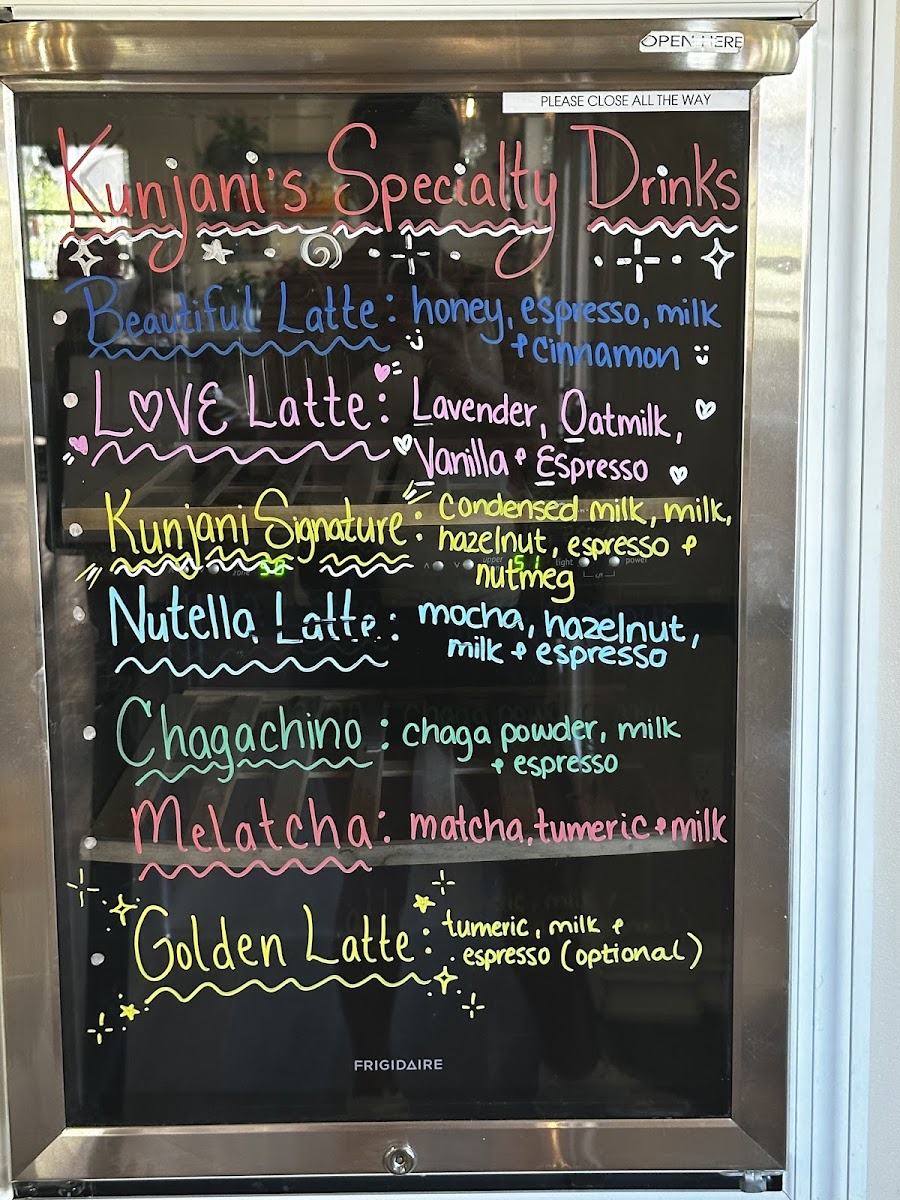 OPEN HERE
PLEASE CLOSE ALL THE WAY
Kunjani's Specialty Drinks
Beautiful Latte: honey, espresso, milk
+ cinnamon
LOVE Latte: Lavender, Oatmilk,
Vanilla + Espresso
Kunjani Signature: condensed milk, milk,
hazelnut, espresso +
nutmeg
Nutella Latte: mocha, hazelnut,
milk + espresso
Chagachino: chaga powder, milk
+ espresso
Melatcha: matcha, tumeric + milk
Golden Latte: tumeric, milk +
espresso (optional)
FRIGIDAIRE